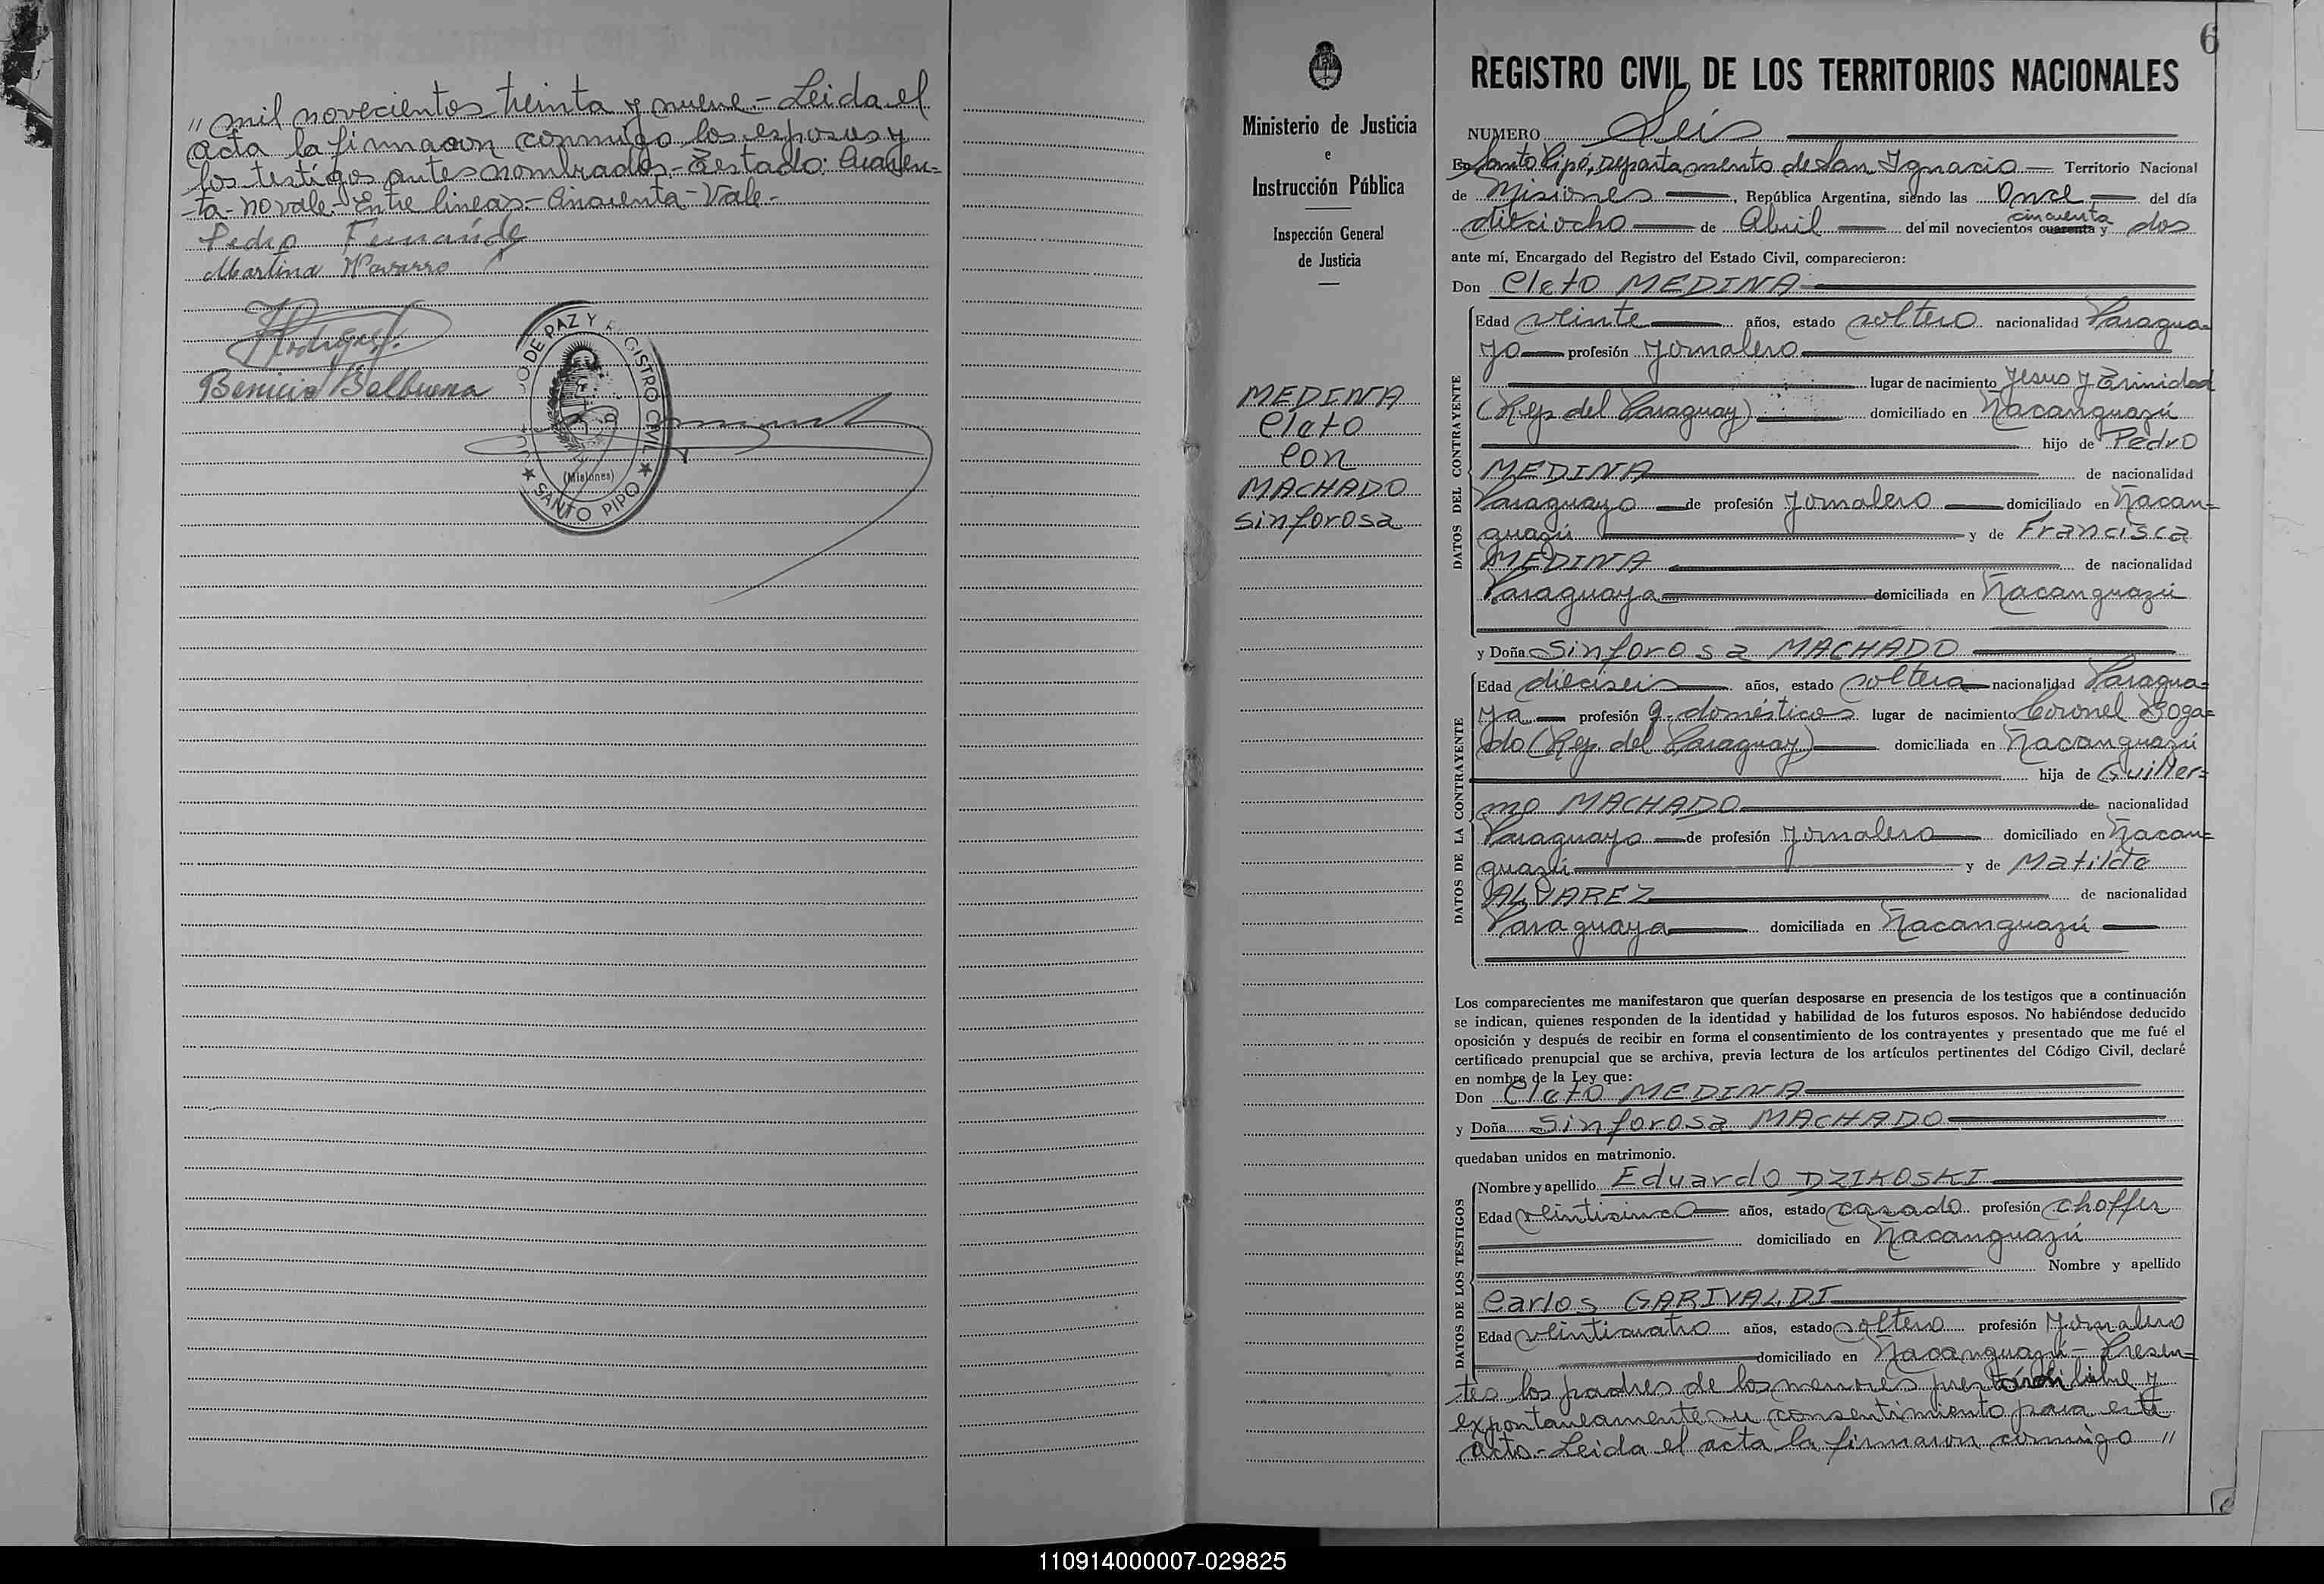 " mil novecientos treinta y nueve - Leida el
acta la firmaron conmigo los esposos y
los testigos antes nombrados - Testado: Cuaren=
-ta - no vale - Entre lineas - Cincuenta - Vale -
Pedro Fernández
Martina Navarro
Benicio Balbuena
REGISTRO CIVIL
(Misiones)
★ SANTO PIPO ★
Ministerio de Justicia
e
Instrucción Pública
Inspección General
de Justicia
MEDINA
Cleto
con
MACHADO
Sinforosa
6
REGISTRO CIVIL DE LOS TERRITORIOS NACIONALES
NUMERO Seis
En Santo Pipó, departamento de San Ignacio Territorio Nacional
de Misiones, República Argentina, siendo las once del día
cincuenta
dieciocho de Abril del mil novecientos cuarenta y dos
ante mí, Encargado del Registro del Estado Civil, comparecieron:
Don Cleto MEDINA
DATOS DEL CONTRAYENTE
Edad veinte años, estado soltero nacionalidad Paragua=
yo profesión Jornalero
lugar de nacimiento Jesus y Trinidad
(Rep. del Paraguay) domiciliado en Ñacanguazú
hijo de Pedro
MEDINA de nacionalidad
Paraguayo de profesión Jornalero domiciliado en Ñacan=
guazú y de Francisca
MEDINA de nacionalidad
Paraguaya domiciliada en Ñacanguazú
y Doña Sinforosa MACHADO
DATOS DE LA CONTRAYENTE
Edad dieciseis años, estado soltera nacionalidad Paragua=
ya profesión q. domésticos lugar de nacimiento Coronel Boga=
do (Rep. del Paraguay) domiciliada en Ñacanguazú
hija de Guiller=
mo MACHADO de nacionalidad
Paraguayo de profesión Jornalero domiciliado en Ñacan=
guazú y de Matilde
ALVAREZ de nacionalidad
Paraguaya domiciliada en Ñacanguazú
Los comparecientes me manifestaron que querían desposarse en presencia de los testigos que a continuación
se indican, quienes responden de la identidad y habilidad de los futuros esposos. No habiéndose deducido
oposición y después de recibir en forma el consentimiento de los contrayentes y presentado que me fué el
certificado prenupcial que se archiva, previa lectura de los artículos pertinentes del Código Civil, declaré
en nombre de la Ley que:
Don Cleto MEDINA
y Doña Sinforosa MACHADO
quedaban unidos en matrimonio.
DATOS DE LOS TESTIGOS
Nombre y apellido Eduardo DZIKOSKI
Edad veintisinco años, estado casado profesión choffer
domiciliado en Ñacanguazú
Nombre y apellido
Carlos GARIVALDI
Edad veinticuatro años, estado soltero profesión Jornalero
domiciliado en Ñacanguazú - Presen=
tes los padres de los menores prestaron libre y
expontaneamente su consentimiento para este
acto - Leida el acta la firmaron conmigo "
110914000007-029825